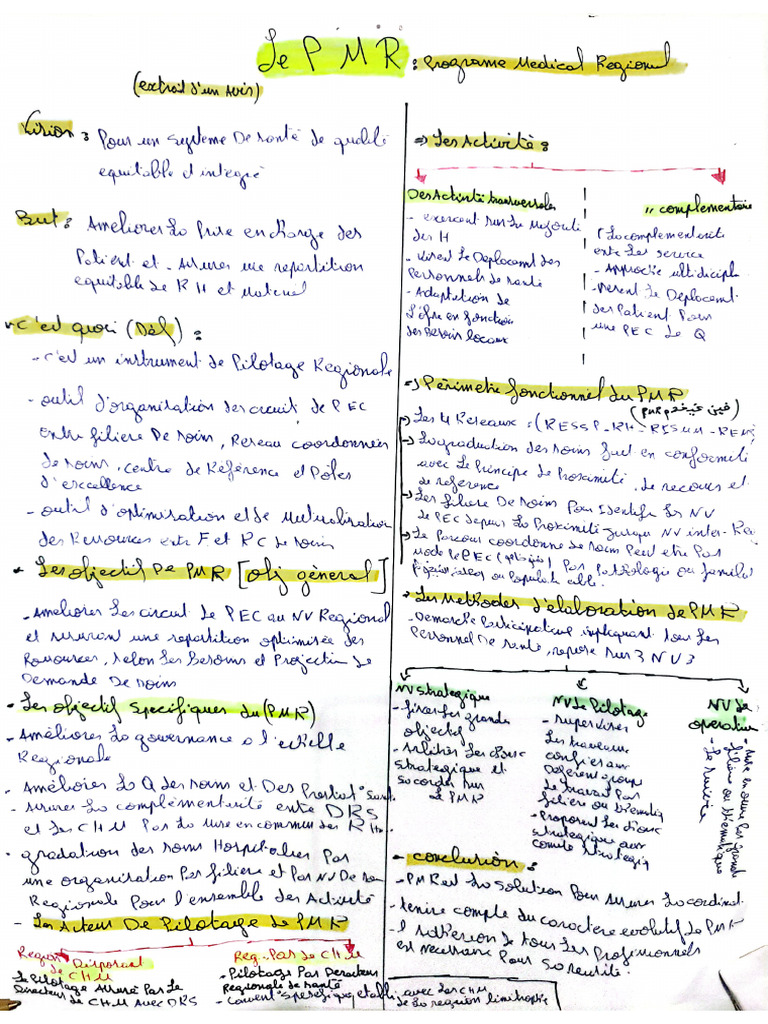 Le PMR : Programe Medical Regional
(extrait d'un Avis)
Vision : Pour un système De santé de qualité
equitable et integré
But : Améliorer La Prise en charge des
Patient et Assurer une repartition
equitable de RH et Materiel
C'est quoi (Déf) :
- C'est un instrument de Pilotage Regionale
- outil d'organisation des circuit de PEC
entre filiere De soins, Reseau coordonnées
de soins, centre de Référence et Pôles
d'excellence
- outil d'optimisation et de Mutualisation
des Ressources entre F et RC de soins
- Les objectif De PMR [obj général]
- Améliorer Les circuit de PEC au NV Regional
et assurant une repartition optimisée des
Ressources, selon Les Besoins et Projection de
Demande De soins
- Les objectif Specifiques du (PMR)
- Améliorer La gouvernance à l'echelle
Regionale
- Améliorer La Q des soins et Des Prestat° Santé
- Assurer La complémentarité entre DRS
et Les CHU Par La mise en commun des RH
- gradation des soins Hospitalier Par
une organisation Par filiere et Par NV De soin
Regionale Pour l'ensemble des Activité
- Les Acteur De Pilotage de PMR
Region Disposant
de CHU
Le Pilotage Assuré Par Le
Directeur de CHU Avec DRS
Reg. Pas de CHU
- Pilotage Par Directeur
Regionale de santé
- Convent° Specifique etabli avec Les CHU
de La region limitrophe
=> Les Activité :
Des Activité transversales
- exercent sur La Majorité
des H
- visent Le Deplacement des
Personnels de santé
- Adaptation de
l'offre en fonction
des Besoins locaux
" complementaire
La complementarité
entre Les service
- Approche multidiscipl
- visent Le Deplacement
des Patient Pour
une PEC de Q
=> Périmetre fonctionnel du PMR
(فين غيخدم PMR)
Les 4 Réseaux = (RESSP - RH - RISUM - REMS
La graduation des soins fait en conformité
avec Le Principe de Proximité, de recours et
de reference
Les filiere De soins Pour Identifie Les NV
de PEC depuis La Proximité jusqu'au NV inter-Reg
Le Parcour coordonné de soins Peut etre Par
mode de PEC Par Pathologie ou famille
ou Population cible.
- Les Méthodes d'élaboration de PMR
- Demarche Participative impliquant tous Les
Personnel De santé, repose sur 3 NV :
NV Strategique
- fixer Les grande
objectif
- Arbitrer Les choix
strategique et
s'accorder sur
Le PMR
NV de Pilotage
- superviser
Les travaux
confiés aux
Différent groupe
de travail Par
filière ou thématiq
- Proposent Les choix
strategique aux
comité strategiq
NV De
operation
- Mise en œuvre Par grande
filière ou thématique
- Conclusion :
- PMR est La solution Pour Assurer La coordinat.
- tenire compte du caractere evolutif de PMR
- l'Adhésion de tous Les Professionnels
est necessaire Pour sa reussite.